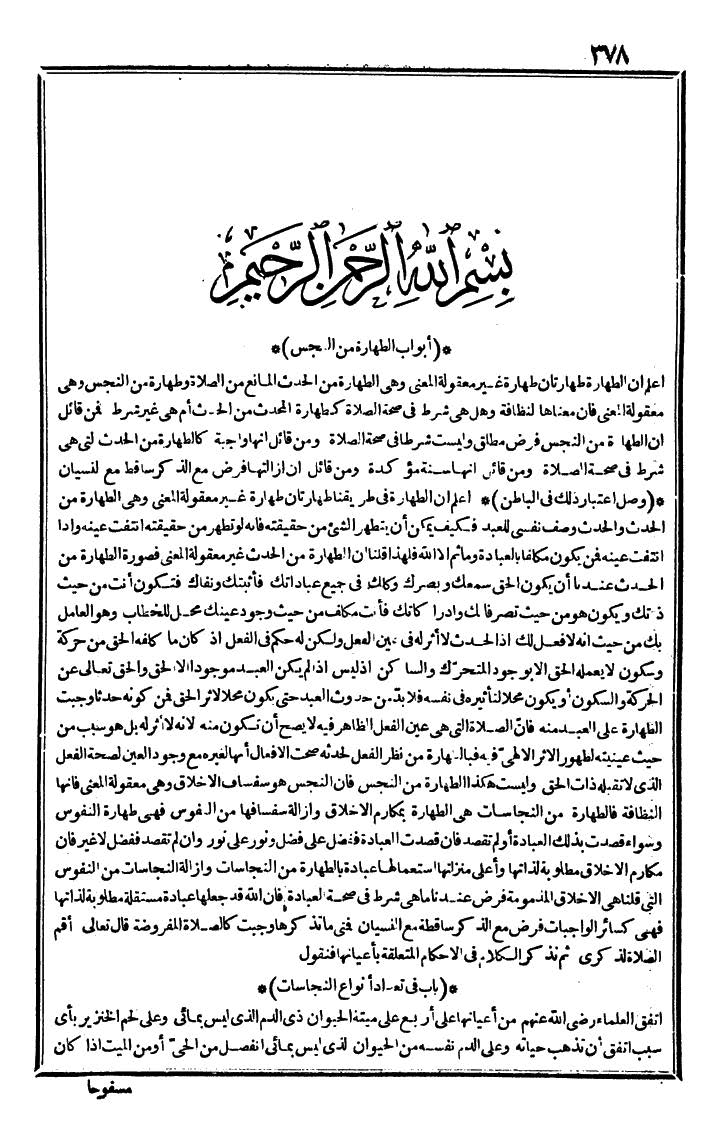 ٣٧٨
بِسْمِ اللّٰهِ الرَّحْمٰنِ الرَّحِيمِ
*(أبواب الطهارة من النجس)*
اعلم ان الطهارة طهارتان طهارة غير معقولة المعنى وهى الطهارة من الحدث المانع من الصلاة وطهارة من النجس وهى
معقولة المعنى فان معناها النظافة وهل هى شرط فى صحة الصلاة كطهارة المحدث من الحدث أم هى غير شرط فمن قائل
ان الطهارة من النجس فرض مطلق وليست شرطا فى صحة الصلاة ومن قائل انها واجبة كالطهارة من الحدث التى هى
شرط فى صحة الصلاة ومن قائل انها سنة مؤكدة ومن قائل ان ازالتها فرض مع الذكر ساقط مع النسيان
*(وصل اعتبار ذلك فى الباطن)* اعلم ان الطهارة فى طريقنا طهارتان طهارة غير معقولة المعنى وهى الطهارة من
الحدث والحدث وصف نفسى للعبد فكيف يمكن أن يتطهر الشئ من حقيقته فانه لو تطهر من حقيقته انتفت عينه واذا
انتفت عينه فمن يكون مكلفا بالعبادة وما ثم الا الله فلهذا قلنا ان الطهارة من الحدث غير معقولة المعنى فصورة الطهارة من
الحدث عندنا أن يكون الحق سمعك وبصرك وكلك فى جميع عباداتك فأثبتك ونفاك فتكون أنت من حيث
ذاتك ويكون هو من حيث تصرفاتك وادراكاتك فأنت مكلف من حيث وجود عينك محل للخطاب وهو العامل
بك من حيث انه لا فعل لك اذ الحدث لا أثر له فى عين الفعل ولكن له حكم فى الفعل اذ كان ما كلفه الحق من حركة
وسكون لا يعمله الحق الا بوجود المتحرّك والساكن اذ ليس اذ لم يكن العبد موجودا الا الحق والحق تعالى عن
الحركة والسكون أو يكون محلا لتأثيره فى نفسه فلا بدّ من حدوث العبد حتى يكون محلا لاثر الحق فمن كونه حدثا وجبت
الطهارة على العبد منه فانّ الصلاة التى هى عين الفعل الظاهر فيه لا يصح أن تكون منه لانه لا أثر له بل هو سبب من
حيث عينيته لظهور الاثر الالهىّ فيه فبالطهارة من نظر الفعل لحدثه صحت الافعال أنها لغيره مع وجود العين لصحة الفعل
الذى لا تقبله ذات الحق وليست هكذا الطهارة من النجس فان النجس هو سفساف الاخلاق وهى معقولة المعنى فانها
النظافة فالطهارة من النجاسات هى الطهارة بمكارم الاخلاق وازالة سفسافها من النفوس فهى طهارة النفوس
وسواء قصدت بذلك العبادة أو لم تقصد فان قصدت العبادة ففضل على فضل ونور على نور وان لم تقصد ففضل لا غير فان
مكارم الاخلاق مطلوبة لذاتها وأعلى منزلتها استعمالها عبادة بالطهارة من النجاسات وازالة النجاسات من النفوس
التى قلنا هى الاخلاق المذمومة فرض عندنا ما هى شرط فى صحة العبادة فان الله قد جعلها عبادة مستقلة مطلوبة لذاتها
فهى كسائر الواجبات فرض مع الذكر ساقطة مع النسيان فمتى ما تذكرها وجبت كالصلاة المفروضة قال تعالى أقم
الصلاة لذكرى ثم نذكر الكلام فى الاحكام المتعلقة بأعيانها فنقول
*(باب فى تعداد أنواع النجاسات)*
اتفق العلماء رضى الله عنهم من أعيانها على أربع على ميتة الحيوان ذى الدم الذى ليس بمائى وعلى لحم الخنزير بأى
سبب اتفق أن تذهب حياته وعلى الدم نفسه من الحيوان الذى ليس بمائى انفصل من الحىّ أو من الميت اذا كان
مسفوحا